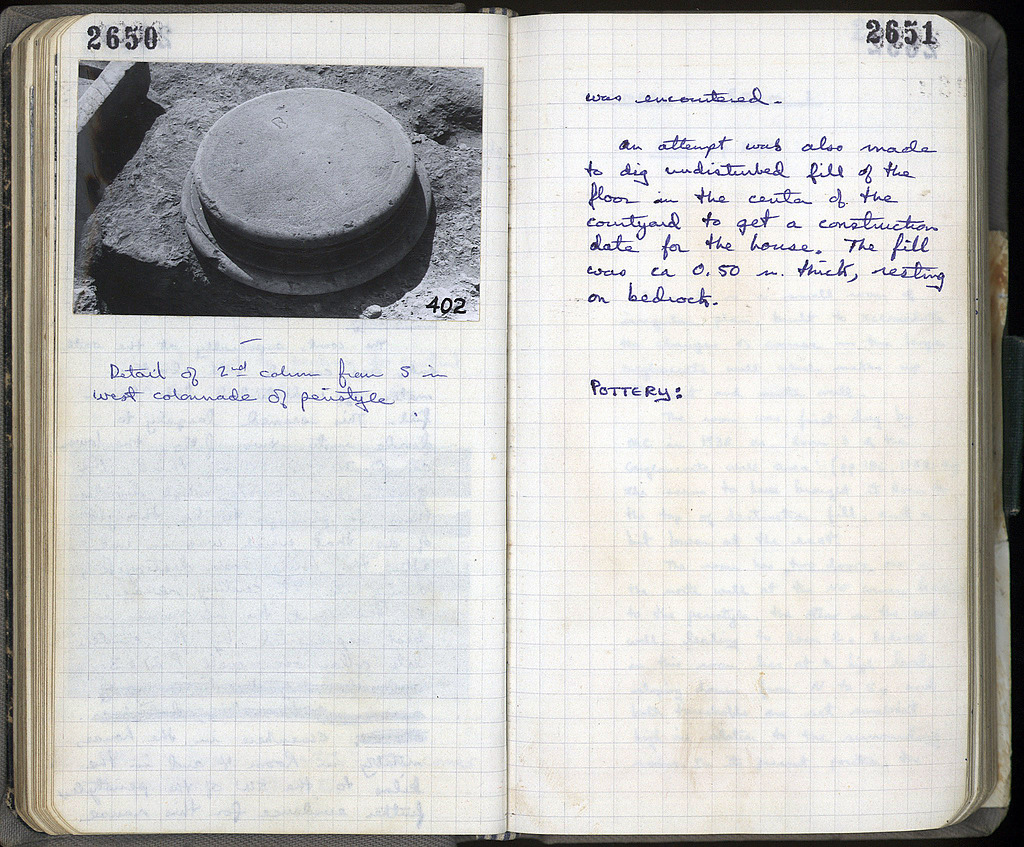 2650
402
Detail of 2nd column from S in
west colonnade of peristyle
2651
was encountered.
An attempt was also made
to dig undisturbed fill of the
floor in the center of the
courtyard to get a construction
date for the house. The fill
was ca 0.50 m. thick, resting
on bedrock.
POTTERY: